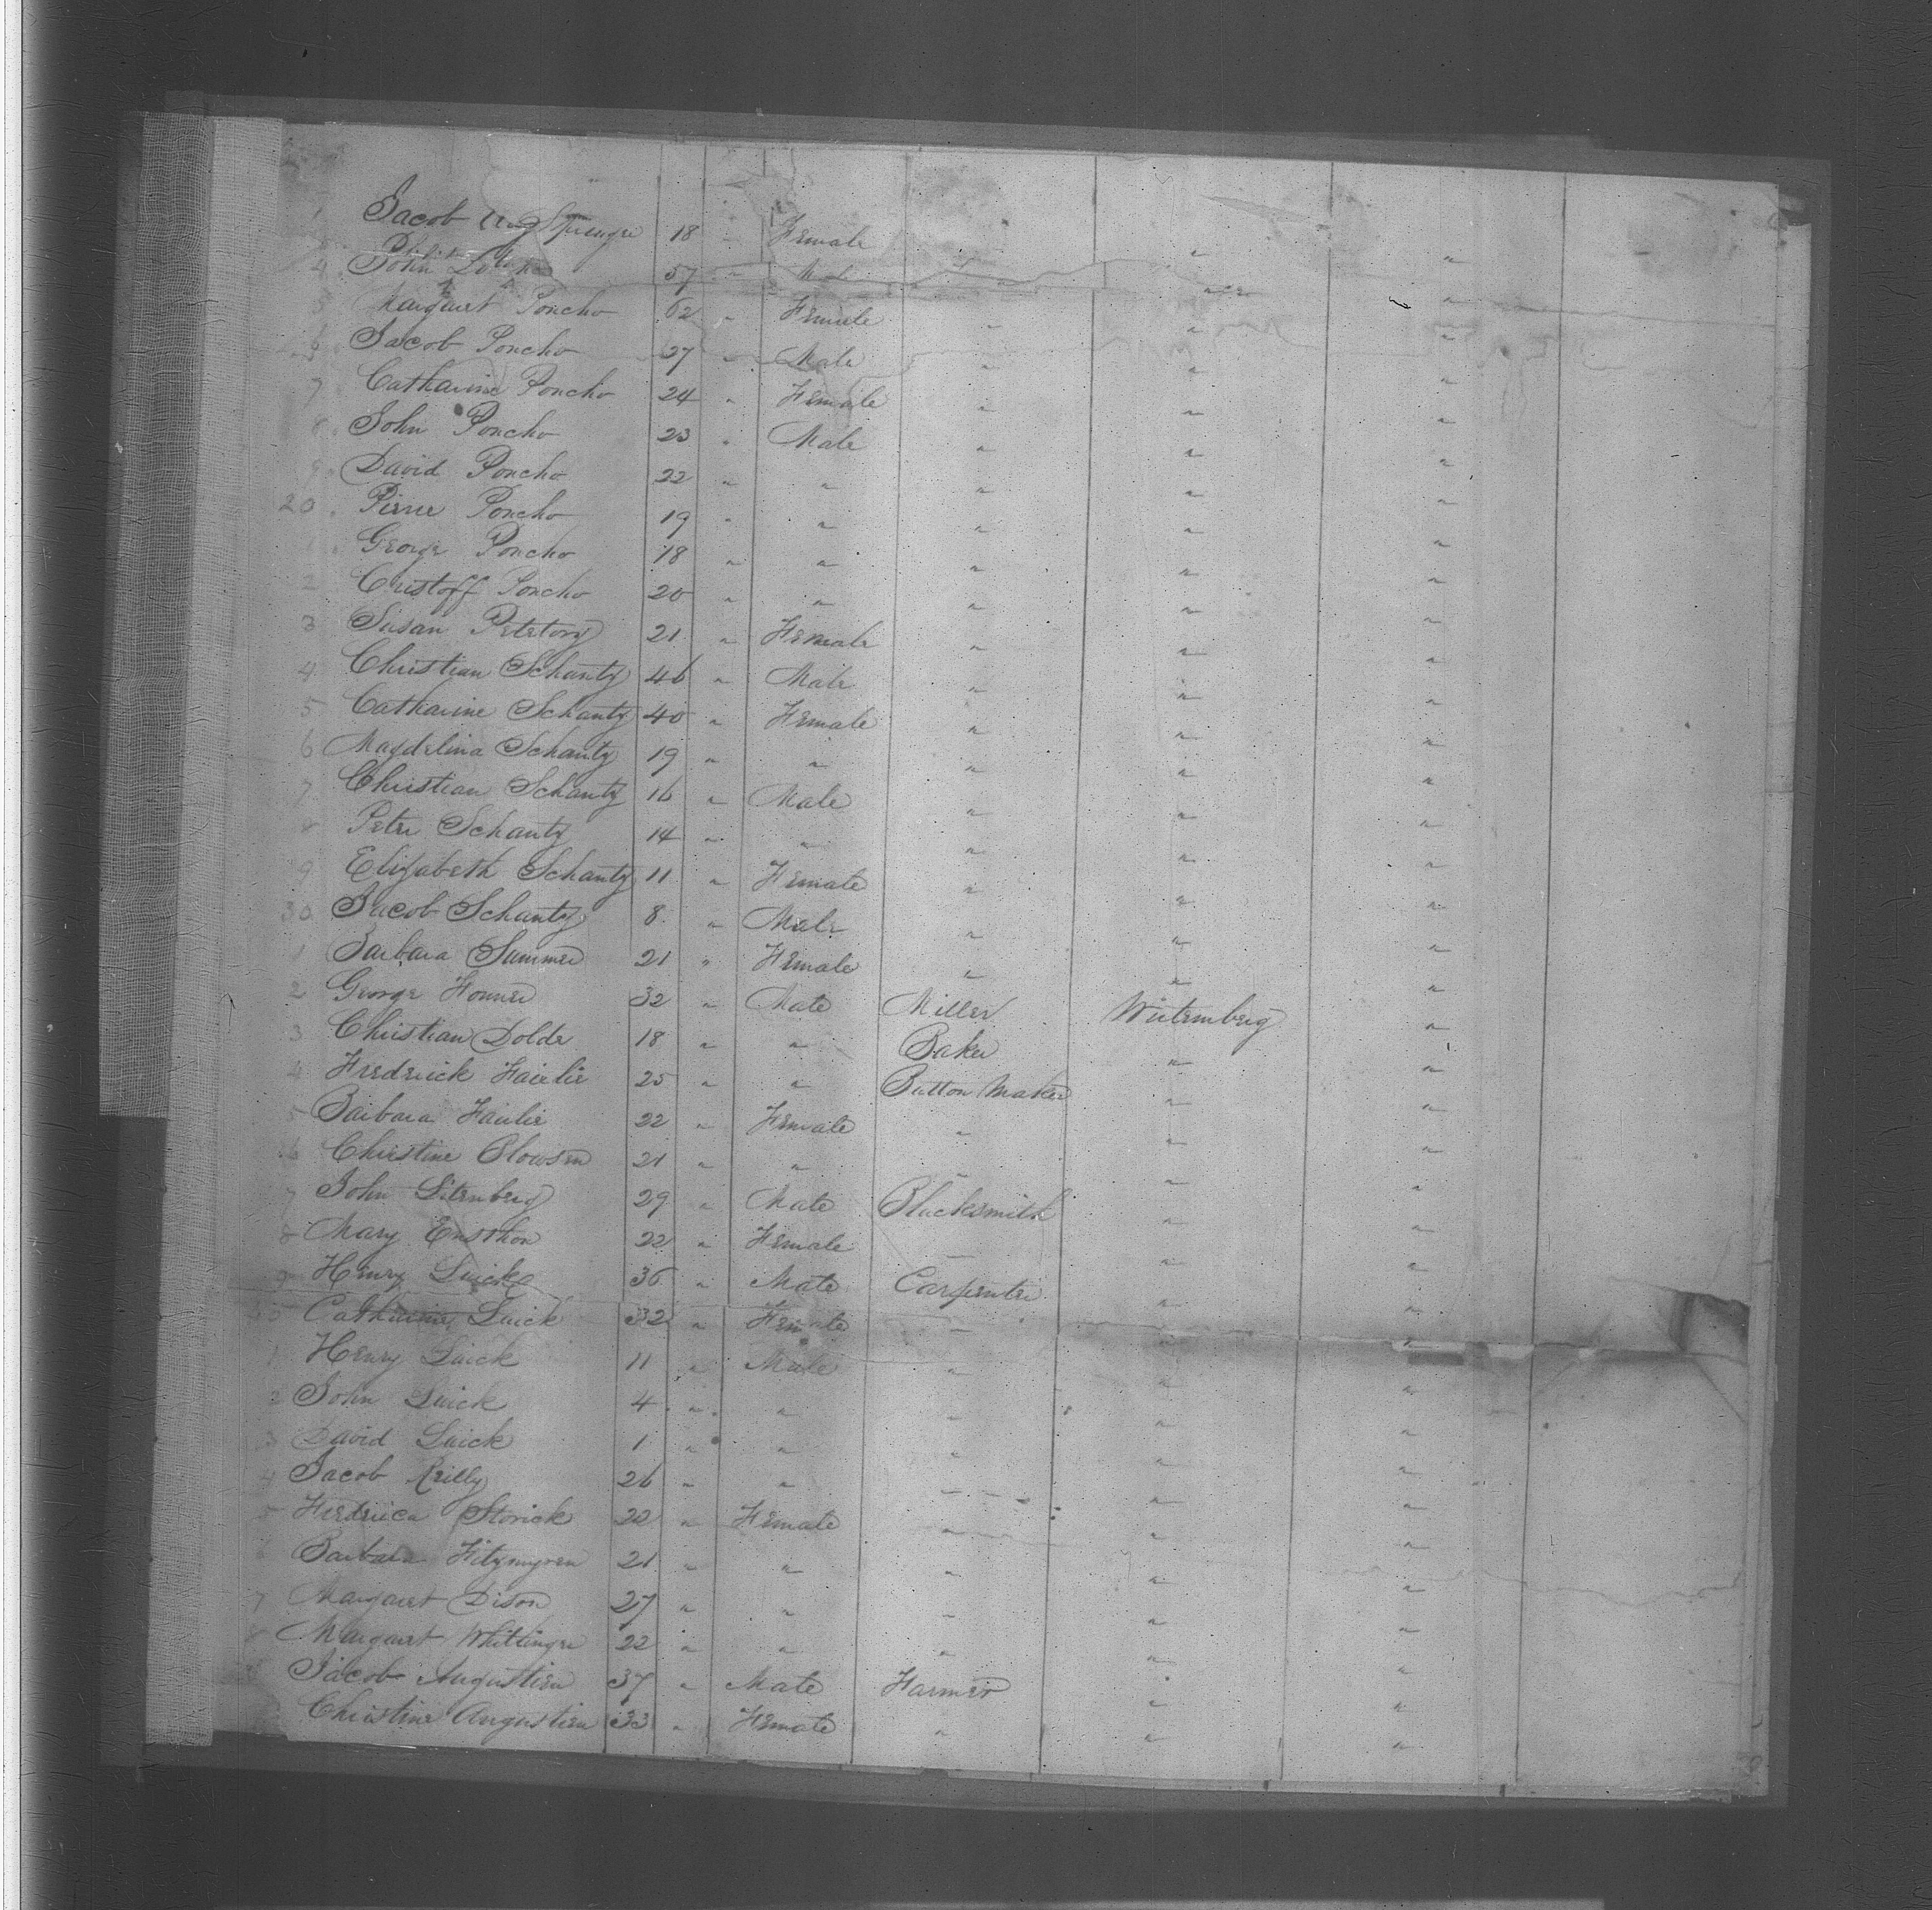 Jacob Springer 18 " Female " "
4 John 57 " " "
5 Margaret Poncho 62 " Female " " "
6 Jacob Poncho 27 " Male " " "
7 Catharine Poncho 24 " Female " " "
8 John Poncho 23 " Male " " "
9 David Poncho 22 " " " " "
20 Pierre Poncho 19 " " " " "
1 George Poncho 18 " " " " "
2 Cristoff Poncho 20 " " " " "
3 Susan 21 " Female " " "
4 Christian Schanty 46 " Male " " "
5 Catharine Schanty 40 " Female " " "
6 Magdelina Schanty 19 " " " " "
7 Christian Schanty 16 " Male " " "
8 Peter Schanty 14 " " " " "
9 Elizabeth Schanty 11 " Female " " "
30 Jacob Schanty 8 " Male " " "
1 Barbara Summer 21 " Female " " "
2 George Honner 32 " Male Miller Wurtemberg "
3 Christian Dolde 18 " " Baker " "
4 Fredrick Fairlie 25 " " Button Maker " "
5 Barbara Fairlie 22 " Female " " "
6 Christine Plowsen 21 " " " " "
7 John Litenberg 29 " Male Blacksmith " "
8 Mary 22 " Female — " "
9 Henry Luick 36 " Male Carpenter " "
40 Catharine Luick 32 " Female — " "
1 Henry Luick 11 " Male " " "
2 John Luick 4 " " " " "
3 David Luick 1 " " " " "
4 Jacob Reilly 26 " " — " "
5 Fredrica Storick 22 " Female " " "
6 Barbara 21 " " " " "
7 Margaret Dison 27 " " " " "
8 Margaret Whittinger 22 " " " " "
Jacob Augustien 37 " Male Farmer " "
Christine Augustien 33 " Female " " "